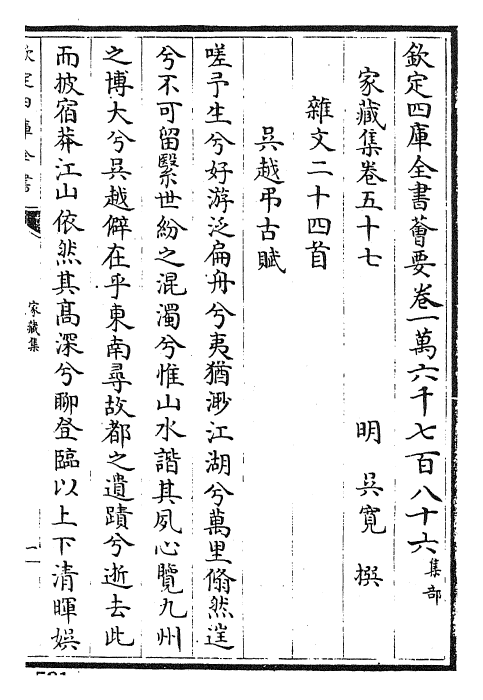 欽定四庫全書薈要卷一萬六千七百八十六集部
家藏集卷五十七
明 吳寬 撰
雜文二十四首
吳越弔古賦
嗟予生兮好游泛扁舟兮夷猶渺江湖兮萬里翛然逞
兮不可留緊世紛之混濁兮惟山水諧其夙心覽九州
之博大兮吳越僻在乎東南尋故都之遺蹟兮逝去此
而披宿莽江山依然其髙深兮聊登臨以上下清暉娱
欽定四庫全書
家藏集
一